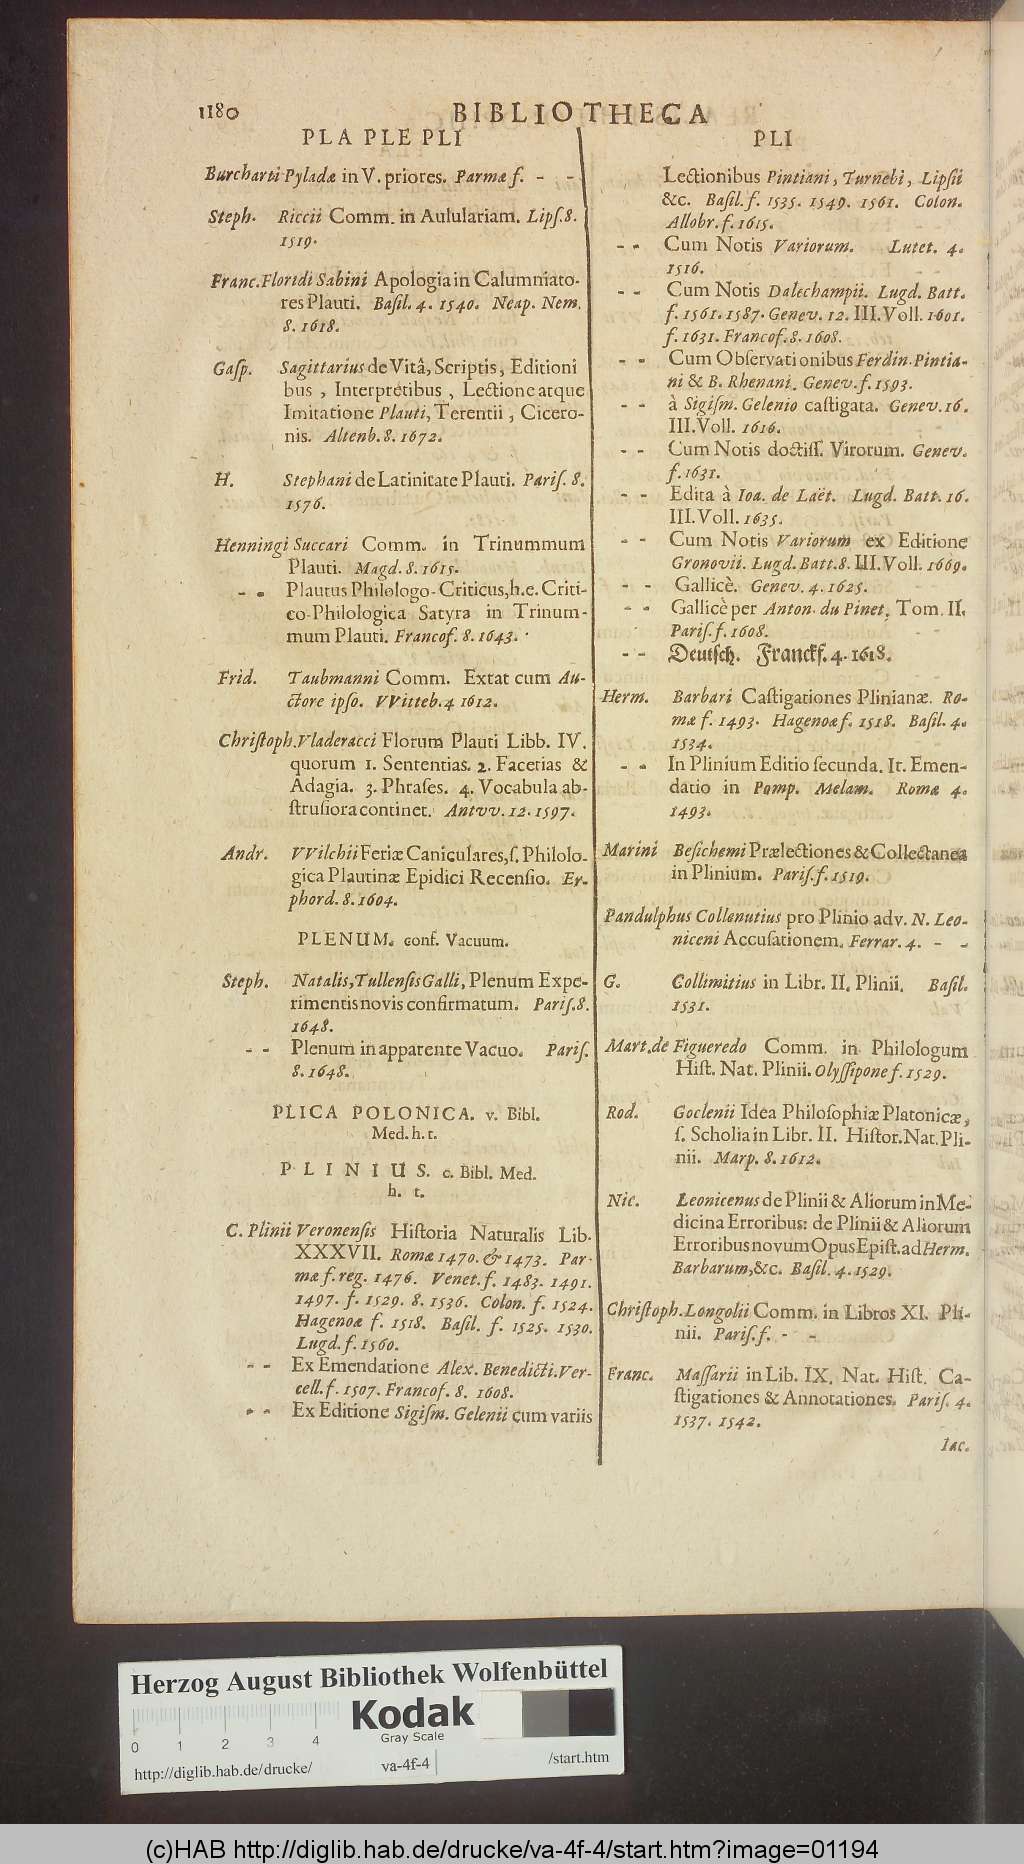 1180
BIBLIOTHECA
PLA PLE PLI
Burcharti Pyladæ in V. priores. Parmæ f. - -
Steph. Riccii Comm. in Aululariam. Lipſ. 8.
1519.
Franc. Floridi Sabini Apologia in Calumniato-
res Plauti. Baſil. 4. 1540. Neap. Nem.
8. 1618.
Gaſp. Sagittarius de Vitâ, Scriptis, Editioni
bus, Interpretibus, Lectione atque
Imitatione Plauti, Terentii, Cicero-
nis. Altenb. 8. 1672.
H. Stephani de Latinitate Plauti. Pariſ. 8.
1576.
Henningi Succari Comm. in Trinummum
Plauti. Magd. 8. 1615.
- - Plautus Philologo-Criticus, h. e. Criti-
co-Philologica Satyra in Trinum-
mum Plauti. Francof. 8. 1643.
Frid. Taubmanni Comm. Extat cum Au-
ctore ipſo. VVitteb. 4 1612.
Chriſtoph. Vladeracci Florum Plauti Libb. IV.
quorum 1. Sententias. 2. Facetias &
Adagia. 3. Phraſes. 4. Vocabula ab-
ſtruſiora continet. Antvv. 12. 1597.
Andr. VVilchii Feriæ Caniculares, ſ. Philolo-
gica Plautinæ Epidici Recenſio. Er-
phord. 8. 1604.
PLENUM. conf. Vacuum.
Steph. Natalis, Tullenſis Galli, Plenum Expe-
rimentis novis confirmatum. Pariſ. 8.
1648.
- - Plenum in apparente Vacuo. Pariſ.
8. 1648.
PLICA POLONICA. v. Bibl.
Med. h. t.
PLINIUS. c. Bibl. Med.
h. t.
C. Plinii Veronenſis Hiſtoria Naturalis Lib.
XXXVII. Romæ 1470. & 1473. Par-
mæ f. reg. 1476. Venet. f. 1483. 1491.
1497. f. 1529. 8. 1536. Colon. f. 1524.
Hagenoæ f. 1518. Baſil. f. 1525. 1530.
Lugd. f. 1560.
- - Ex Emendatione Alex. Benedicti. Ver-
cell. f. 1507. Francof. 8. 1608.
- - Ex Editione Sigiſm. Gelenii cum variis
PLI
Lectionibus Pintiani, Turnebi, Lipſii
&c. Baſil. f. 1535. 1549. 1561. Colon.
Allobr. f. 1615.
- - Cum Notis Variorum. Lutet. 4.
1516.
- - Cum Notis Dalechampii. Lugd. Batt.
f. 1561. 1587. Genev. 12. III. Voll. 1601.
f. 1631. Francof. 8. 1608.
- - Cum Obſervationibus Ferdin. Pintia-
ni & B. Rhenani. Genev. f. 1593.
- - à Sigiſm. Gelenio caſtigata. Genev. 16.
III. Voll. 1616.
- - Cum Notis doctiſſ. Virorum. Genev.
f. 1631.
- - Edita à Ioa. de Laët. Lugd. Batt. 16.
III. Voll. 1635.
- - Cum Notis Variorum ex Editione
Gronovii. Lugd. Batt. 8. III. Voll. 1669.
- - Gallicè. Genev. 4. 1625.
- - Gallicè per Anton. du Pinet, Tom. II.
Pariſ. f. 1608.
- - Deutſch. Franckf. 4. 1618.
Herm. Barbari Caſtigationes Plinianæ. Ro-
mæ f. 1493. Hagenoæ f. 1518. Baſil. 4.
1534.
- - In Plinium Editio ſecunda. It. Emen-
datio in Pomp. Melam. Romæ 4.
1493.
Marini Beſichemi Prælectiones & Collectanea
in Plinium. Pariſ. f. 1519.
Pandulphus Collenutius pro Plinio adv. N. Leo-
niceni Accuſationem. Ferrar. 4. - -
G. Collimitius in Libr. II. Plinii. Baſil.
1531.
Mart. de Figueredo Comm. in Philologum
Hiſt. Nat. Plinii. Olyſſipone f. 1529.
Rod. Goclenii Idea Philoſophiæ Platonicæ,
ſ. Scholia in Libr. II. Hiſtor. Nat. Pli-
nii. Marp. 8. 1612.
Nic. Leonicenus de Plinii & Aliorum in Me-
dicina Erroribus: de Plinii & Aliorum
Erroribus novum Opus Epiſt. ad Herm.
Barbarum, &c. Baſil. 4. 1529.
Chriſtoph. Longolii Comm. in Libros XI. Pli-
nii. Pariſ. f. - -
Franc. Maſſarii in Lib. IX. Nat. Hiſt. Ca-
ſtigationes & Annotationes. Pariſ. 4.
1537. 1542.
Iac.
Herzog August Bibliothek Wolfenbüttel
Kodak
Gray Scale
0 1 2 3 4
http://diglib.hab.de/drucke/ va-4f-4 /start.htm
(c)HAB http://diglib.hab.de/drucke/va-4f-4/start.htm?image=01194